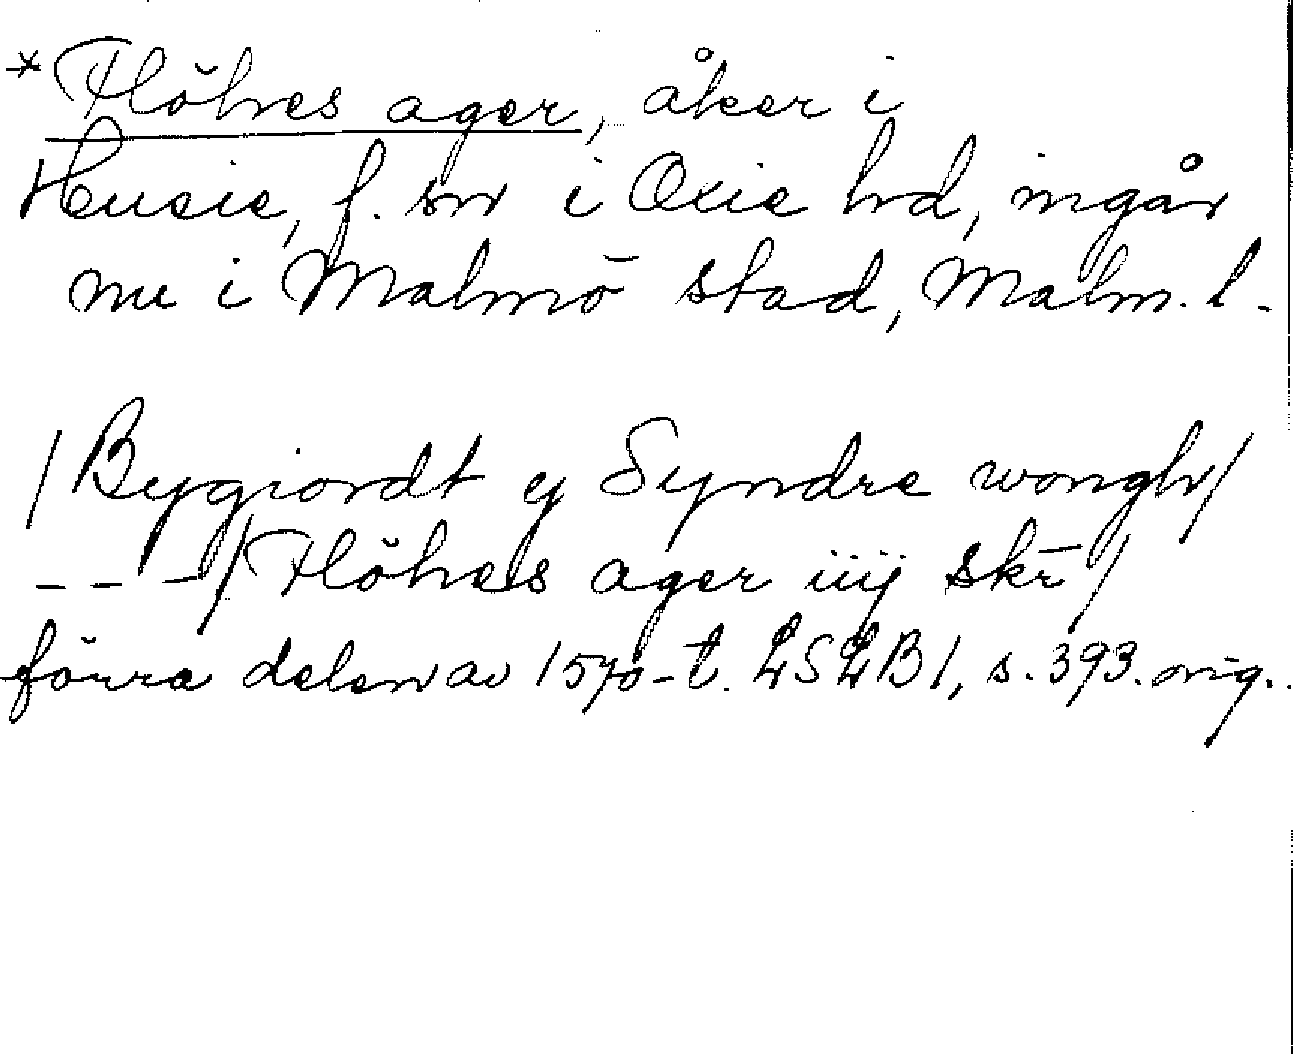 *Flöhres ager, åker i
Husie, f. sn i Oxie hd, ingår
nu i Malmö stad, Malm. l.
/Bygiordt ej Syndre wongh/
---/Flöhes ager iiij skr/
förra delen av 1570-t. LSLB1, s. 393. orig.